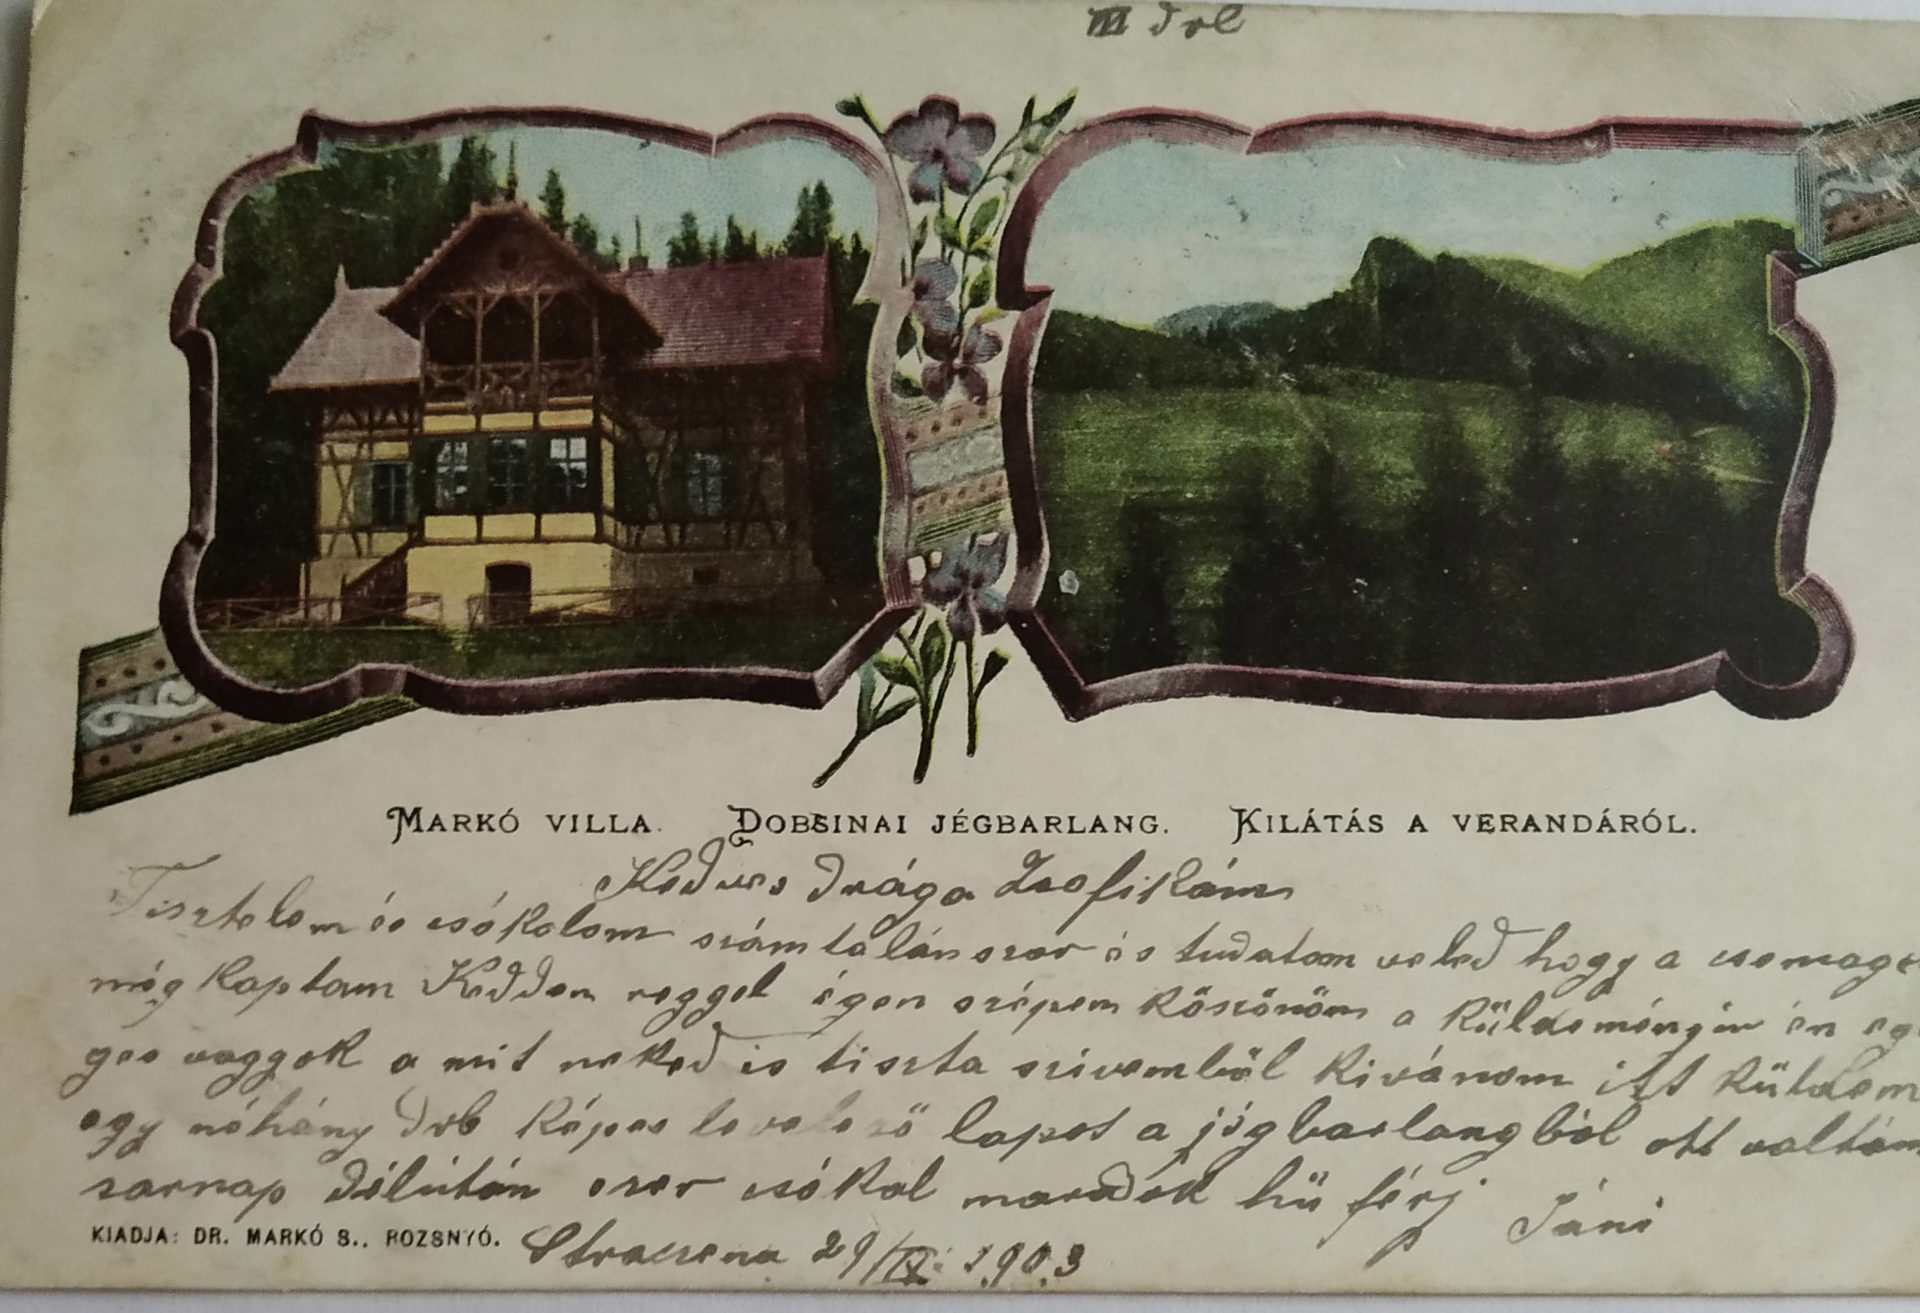 III drb
MARKÓ VILLA. DOBSINAI JÉGBARLANG. KILÁTÁS A VERANDÁRÓL.
Kedves drága Zsofikám
Tisztelem és csókolom számtalánszor és tudatom veled hogy a csomagot
még kaptam Kedden reggel égen szépem köszönöm a küldeményin én eg
ges vaggok a mit neked is tiszta szivemből kivánom itt küldem
egy néhány drb képes levelező lapot a jégbarlangból ott voltam
sarnap délután ezer csókol maradok hü férj Jáni
KIADJA: DR. MARKÓ S.. ROZSNYÓ. Stracsena 29/IX. 1903